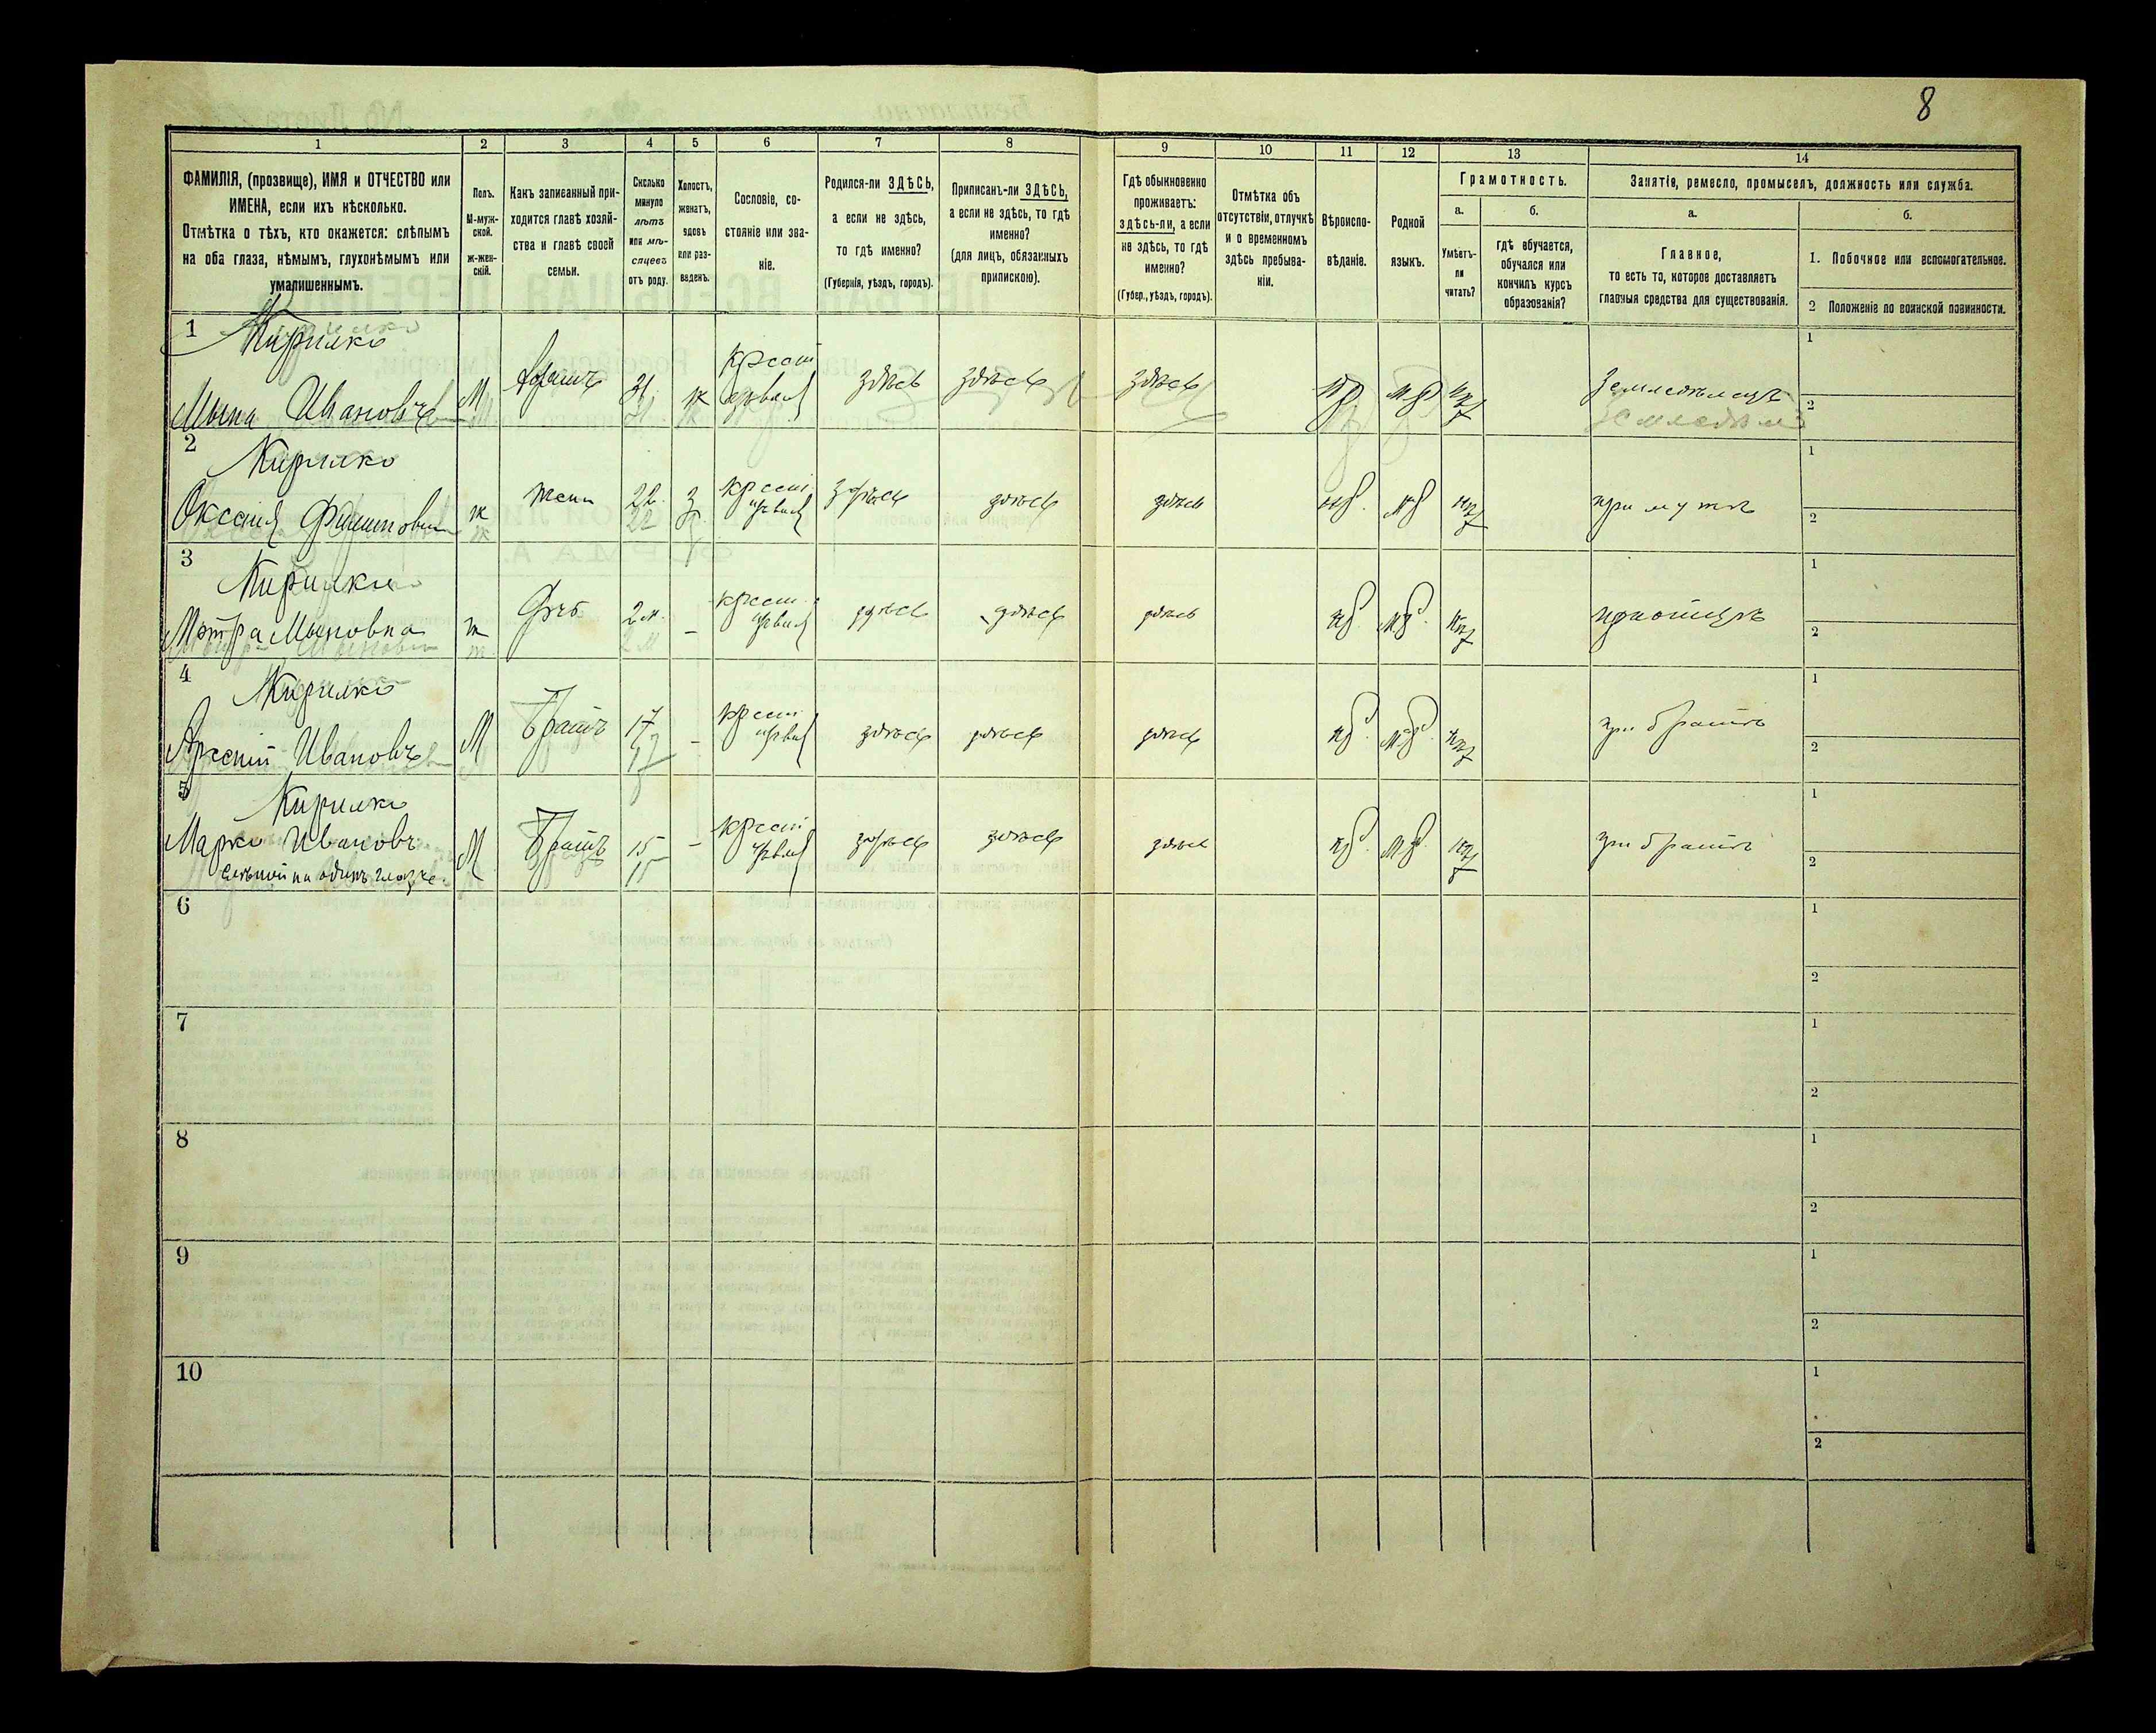 8
1 2 3 4 5 6 7 8 9 10 11 12 13 14
ФАМИЛІЯ, (прозвище), ИМЯ и ОТЧЕСТВО или
ИМЕНА, если ихъ нѣсколько.
Отмѣтка о тѣхъ, кто окажется: слѣпымъ
на оба глаза, нѣмымъ, глухонѣмымъ или
умалишеннымъ.
Полъ.
М-муж-
ской.
ж-жен-
скій.
Какъ записанный при-
ходится главѣ хозяй-
ства и главѣ своей
семьи.
Сколько
минуло
лѣтъ
или мѣ-
сяцевъ
отъ роду.
Холостъ,
женатъ,
вдовъ
или раз-
веденъ.
Сословіе, со-
стояніе или зва-
ніе.
Родился-ли ЗДѢСЬ,
а если не здѣсь,
то гдѣ именно?
(Губернія, уѣздъ, городъ).
Приписанъ-ли ЗДѢСЬ,
а если не здѣсь, то гдѣ
именно?
(для лицъ, обязанныхъ
припискою).
Гдѣ обыкновенно
проживаетъ:
здѣсь-ли, а если
не здѣсь, то гдѣ
именно?
(Губер., уѣздъ, городъ).
Отмѣтка объ
отсутствіи, отлучкѣ
и о временномъ
здѣсь пребыва-
ніи.
Вѣроиспо-
вѣданіе.
Родной
языкъ.
Грамотность.
а.
Умѣетъ-
ли
читать?
б.
гдѣ обучается,
обучался или
кончилъ курсъ
образованія?
Занятіе, ремесло, промыселъ, должность или служба.
а.
Главное,
то есть то, которое доставляетъ
главныя средства для существованія.
б.
1. Побочное или вспомогательное.
2 Положеніе по воинской повинности.
1 Кирилко
Мына Ивановъ М 21 ж крест здѣсь здѣсь здѣсь земледѣлецъ
1
2
2 Кирилко
Оксанія Филиповна ж жена 22 з крест здѣсь здѣсь здѣсь при мужѣ
1
2
3 Кирилко
Мотря Мыновна ж дчь 2 м. – крест здѣсь здѣсь здѣсь
1
2
4 Кирилко
Арсеній Ивановъ М Братъ 17 – крест здѣсь здѣсь здѣсь при братѣ
1
2
5 Кирилко
Марко Ивановъ М Братъ 15 – крест здѣсь здѣсь здѣсь при братѣ
слѣпой на одинъ глазъ.
1
2
6
1
2
7
1
2
8
1
2
9
1
2
10
1
2